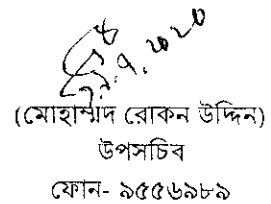 (মোহাম্মদ রোকন উদ্দিন)
উপসচিব
ফোন- ৯৫৫৬৯৮৯